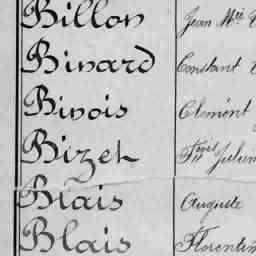 Billon Jean Mie
Binard Constant
Binois Clément
Bizet Fçois Julien
Blais Auguste
Blais Florentin